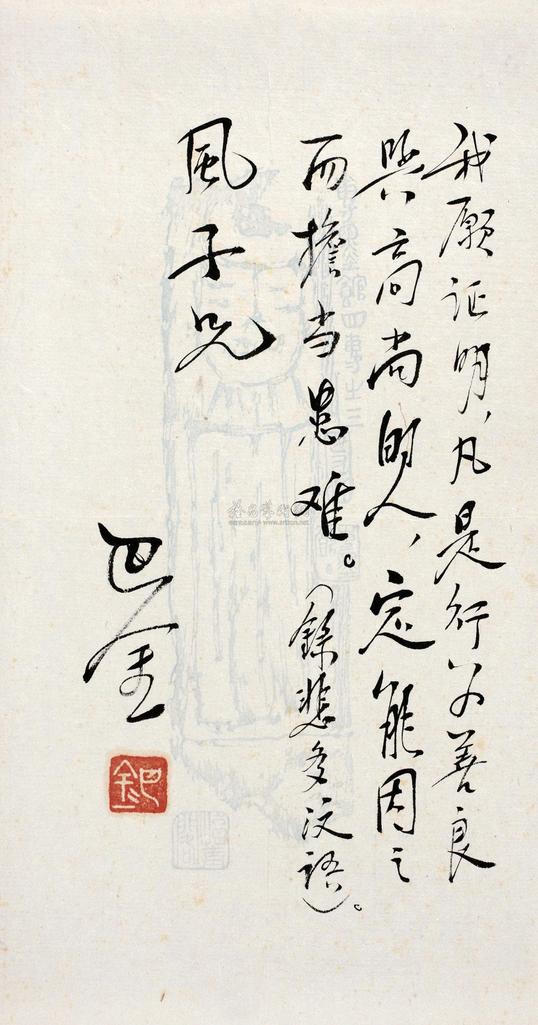 我願证明,凡是行为善良
與高尚的人,定能因之
而擔当患难。(錄悲多汶語)。
風子兄
巴金
巴金